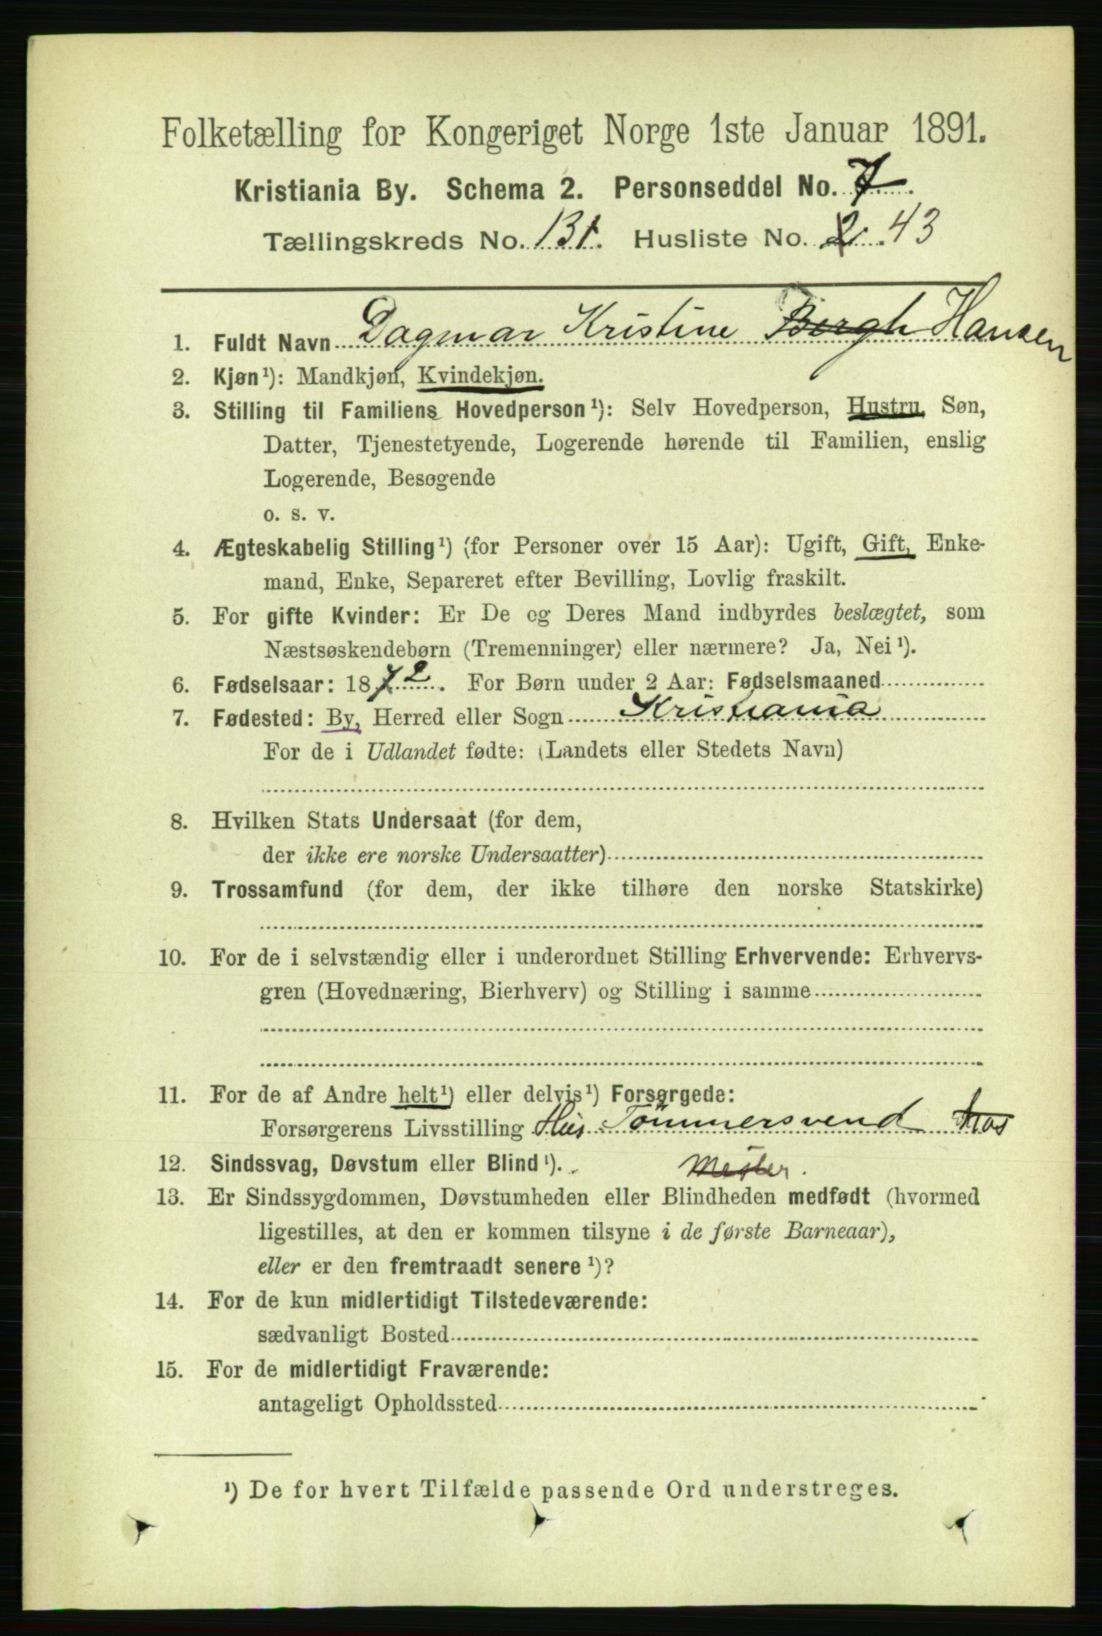 Folketælling for Kongeriget Norge 1ste Januar 1891.
Kristiania By. Schema 2. Personseddel No. 7
Tællingskreds No. 131. Husliste No. 2 43
1. Fuldt Navn Dagmar Kristine Bergh Hansen
2. Kjøn¹): Mandkjøn, Kvindekjøn.
3. Stilling til Familiens Hovedperson¹): Selv Hovedperson, Hustru, Søn,
Datter, Tjenestetyende, Logerende hørende til Familien, enslig
Logerende, Besøgende
o. s. v.
4. Ægteskabelig Stilling¹) (for Personer over 15 Aar): Ugift, Gift, Enke-
mand, Enke, Separeret efter Bevilling, Lovlig fraskilt.
5. For gifte Kvinder: Er De og Deres Mand indbyrdes beslægtet, som
Næstsøskendebørn (Tremenninger) eller nærmere? Ja, Nei¹).
6. Fødselsaar: 1872. For Børn under 2 Aar: Fødselsmaaned
7. Fødested: By, Herred eller Sogn Kristiania
For de i Udlandet fødte: (Landets eller Stedets Navn)
8. Hvilken Stats Undersaat (for dem,
der ikke ere norske Undersaatter)
9. Trossamfund (for dem, der ikke tilhøre den norske Statskirke)
10. For de i selvstændig eller i underordnet Stilling Erhvervende: Erhvervs-
gren (Hovednæring, Bierhverv) og Stilling i samme
11. For de af Andre helt¹) eller delvis¹) Forsørgede:
Forsørgerens Livsstilling Hus Tømmersvend hos
12. Sindssvag, Døvstum eller Blind¹). Mester.
13. Er Sindssygdommen, Døvstumheden eller Blindheden medfødt (hvormed
ligestilles, at den er kommen tilsyne i de første Barneaar),
eller er den fremtraadt senere¹)?
14. For de kun midlertidigt Tilstedeværende:
sædvanligt Bosted
15. For de midlertidigt Fraværende:
antageligt Opholdssted
¹) De for hvert Tilfælde passende Ord understreges.